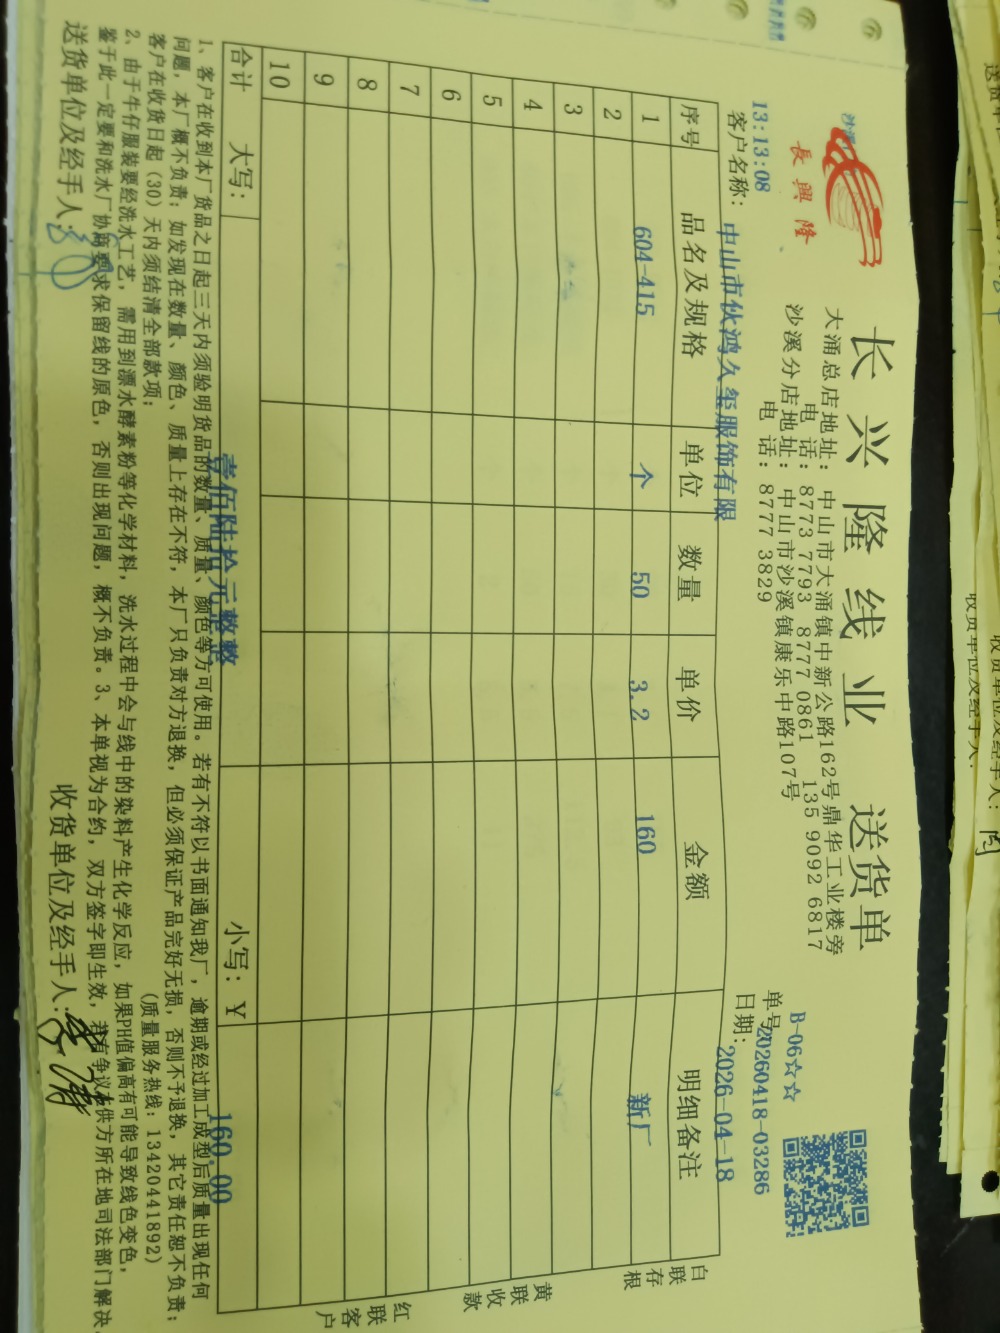 長興隆
长兴隆线业 送货单
大涌总店地址：中山市大涌镇中新公路162号鼎华工业楼旁
电 话：8773 7793 8777 0861 135 9092 6817
沙溪分店地址：中山市沙溪镇康乐中路107号
电 话：8777 3829
B-06☆☆
单号：20260418-03286
13:13:08
日期：2026-04-18
客户名称：中山市伙鸿久玺服饰有限
序号 品名及规格 单位 数量 单价 金额 明细备注
1 604-415 个 50 3.2 160 新厂
2
3
4
5
6
7
8
9
10
合计 大写：壹佰陆拾元整整 小写：￥160.00
白联存根
黄联收款
红联客户
1、客户在收到本厂货品之日起三天内须验明货品的数量、质量、颜色等方可使用。若有不符以书面通知我厂，逾期或经过加工成型后质量出现任何
问题，本厂概不负责；如发现在数量、颜色、质量上存在不符，本厂只负责对方退换，但必须保证产品完好无损，否则不予退换，其它责任恕不负责；
客户在收货日起（30）天内须结清全部款项；
(质量服务热线：13420441892)
2、由于牛仔服装要经洗水工艺，需用到漂水酵素粉等化学材料，洗水过程中会与线中的染料产生化学反应，如果PH值偏高有可能导致线色变色，
鉴于此一定要和洗水厂协商要求保留线的原色，否则出现问题，概不负责。3、本单视为合约，双方签字即生效，若有争议供方所在地司法部门解决。
送货单位及经手人：
收货单位及经手人：
收货单位及经手人：
收货单位及经手人：